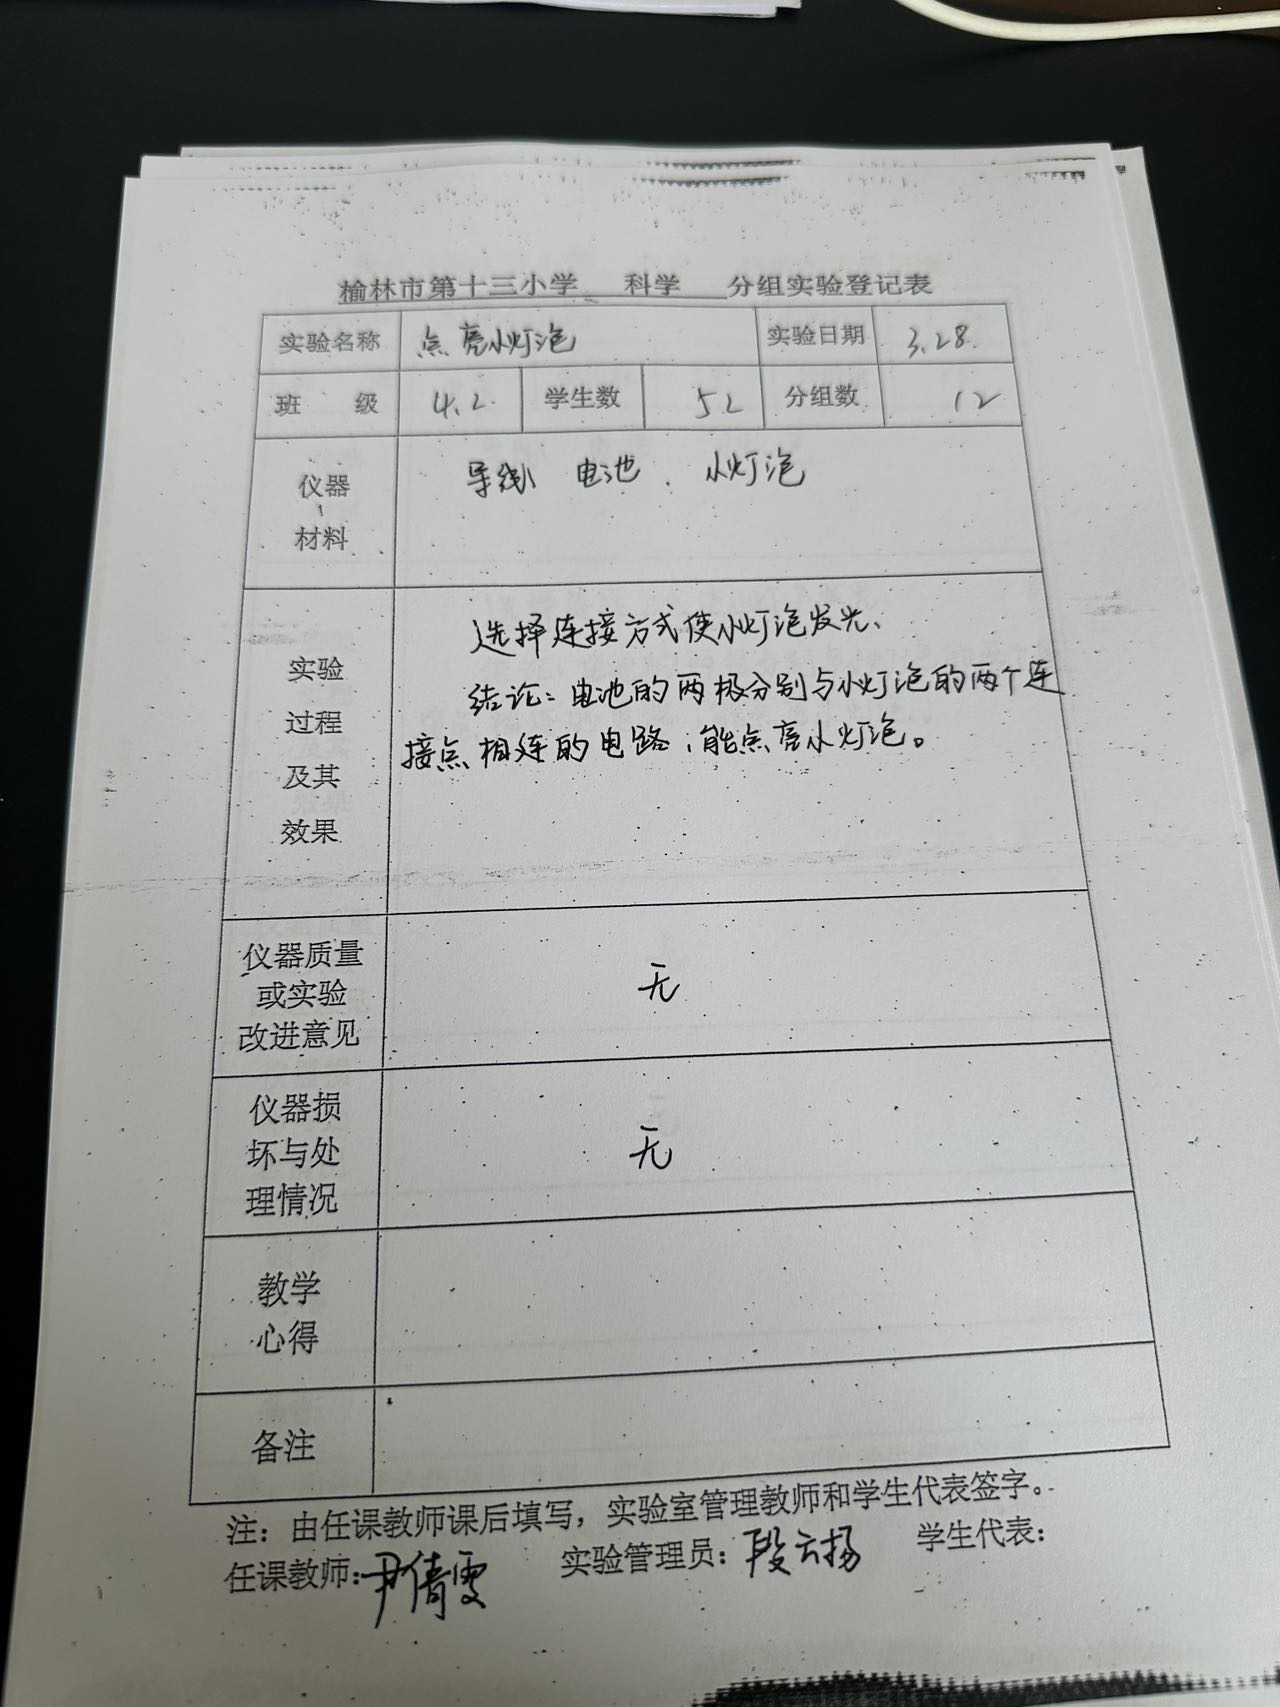 榆林市第十三小学 科学 分组实验登记表
实验名称 点亮小灯泡 实验日期 3.28.
班 级 4.2. 学生数 52 分组数 12
仪器、材料 导线 电池、小灯泡
实验过程及其效果
选择连接方式使小灯泡发光、
结论:电池的两极分别与小灯泡的两个连
接点相连的电路,能点亮小灯泡。
仪器质量
或实验
改进意见
无
仪器损
坏与处
理情况
无
教学
心得
备注
注:由任课教师课后填写,实验室管理教师和学生代表签字。
任课教师:尹倩雯 实验管理员:段云扬 学生代表: